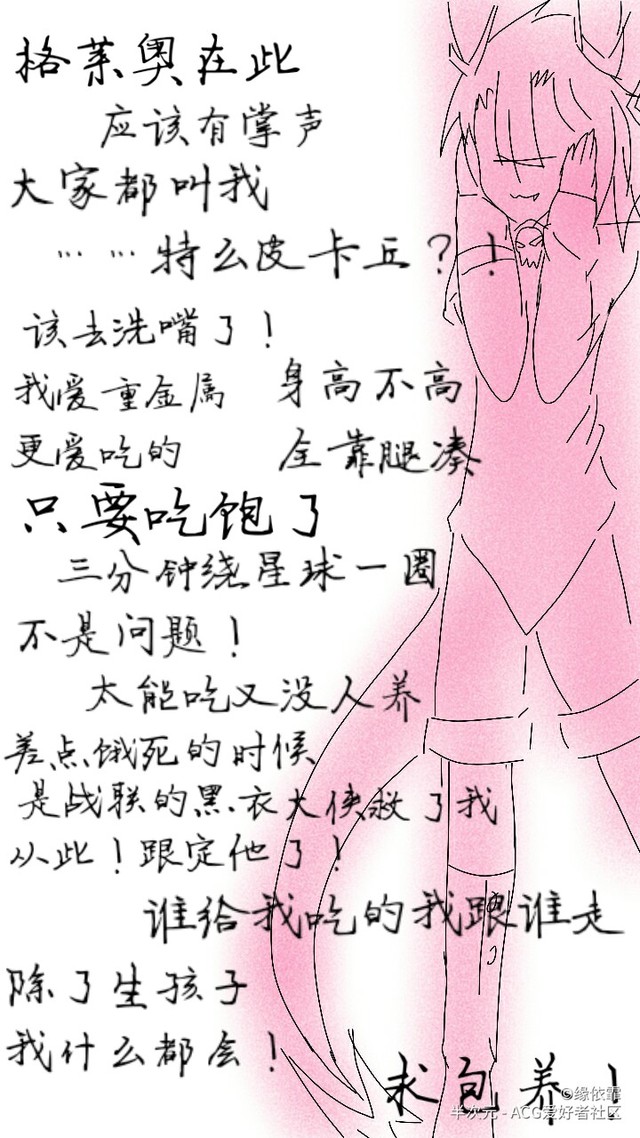 格莱奥在此
应该有掌声
大家都叫我
……特么皮卡丘？！
该去洗嘴了！
我爱重金属 身高不高
更爱吃的 全靠腿凑
只要吃饱了
三分钟绕星球一圈
不是问题！
太能吃又没人养
差点饿死的时候
是战联的黑衣大侠救了我
从此！跟定他了！
谁给我吃的我跟谁走
除了生孩子
我什么都会！
求包养！
©缘依霏
半次元 - ACG爱好者社区